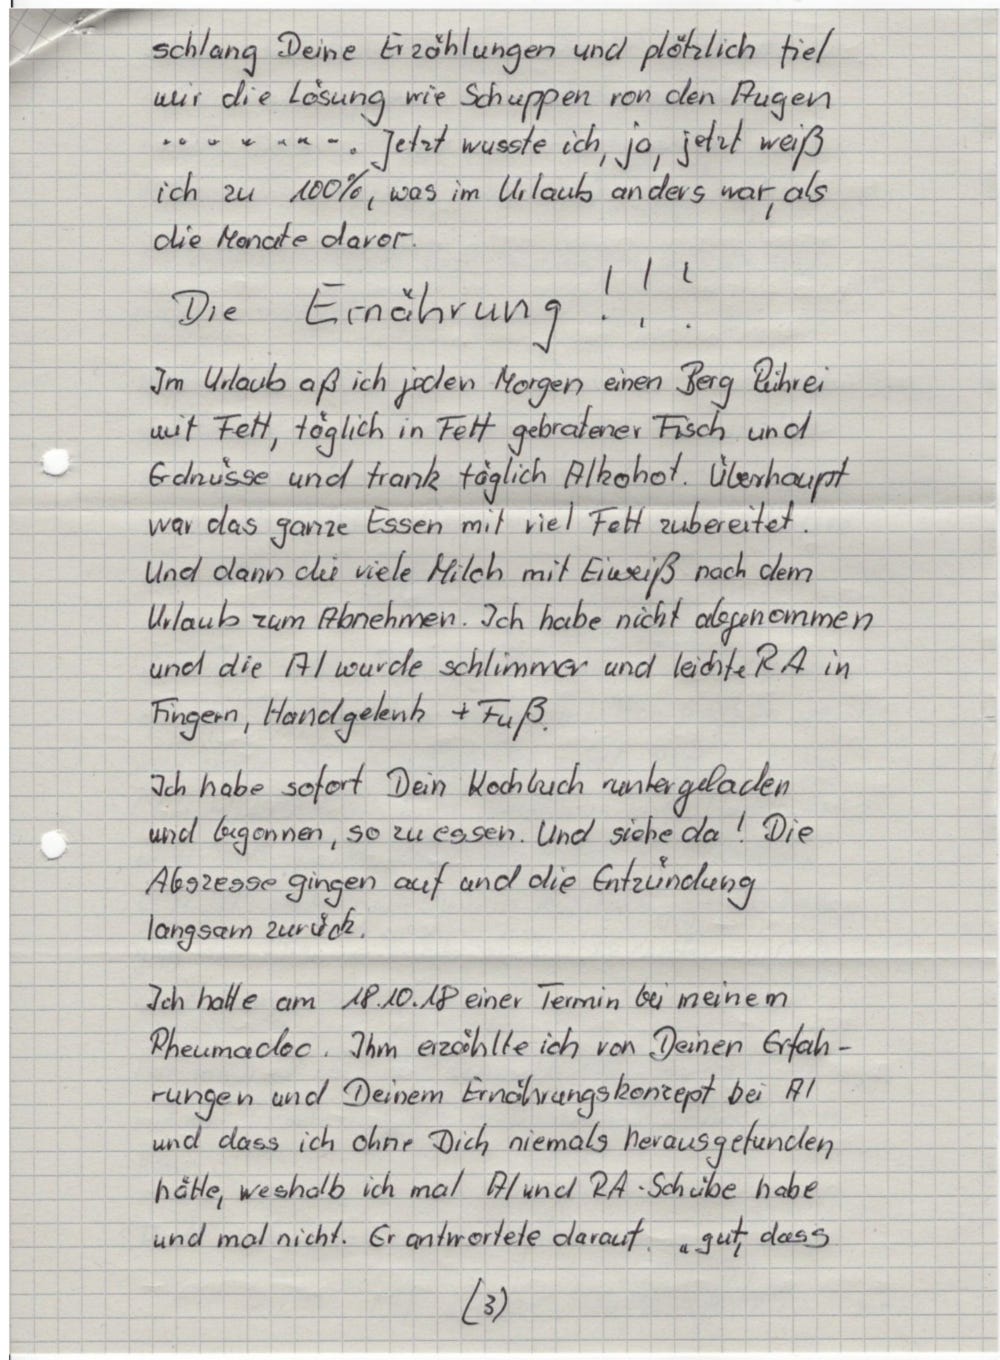 schlang Deine Erzählungen und plötzlich fiel
mir die Lösung wie Schuppen von den Augen
........ Jetzt wusste ich, ja, jetzt weiß
ich zu 100%, was im Urlaub anders war, als
die Monate davor.
Die Ernährung !!!
Im Urlaub aß ich jeden Morgen einen Berg Rührei
mit Fett, täglich in Fett gebratener Fisch und
Erdnüsse und trank täglich Alkohol. Überhaupt
war das ganze Essen mit viel Fett zubereitet.
Und dann die viele Milch mit Eiweiß nach dem
Urlaub zum Abnehmen. Ich habe nicht abgenommen
und die AI wurde schlimmer und leichte RA in
Fingern, Handgelenk + Fuß.
Ich habe sofort Dein Kochbuch runtergeladen
und begonnen, so zu essen. Und siehe da! Die
Abszesse gingen auf und die Entzündung
langsam zurück.
Ich hatte am 18.10.18 einer Termin bei meinem
Rheumadoc. Ihm erzählte ich von Deinen Erfah-
rungen und Deinem Ernährungskonzept bei AI
und dass ich ohne Dich niemals herausgefunden
hätte, weshalb ich mal AI und RA-Schübe habe
und mal nicht. Er antwortete darauf. „gut, dass
(3)